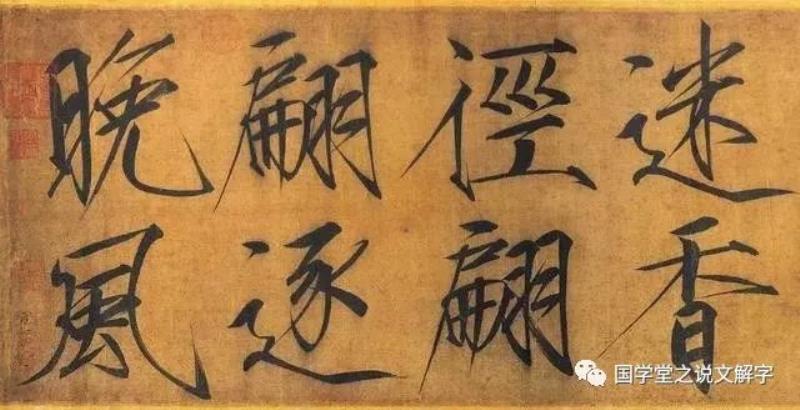 迷香
徑翩
翩逐
晚風
国学堂之说文解字